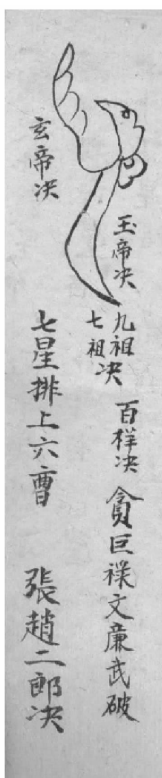 玉帝决
九祖
七祖
决
百样决
貪巨祿文廉武破
玄帝决
七星排上六曹
張趙二郎决